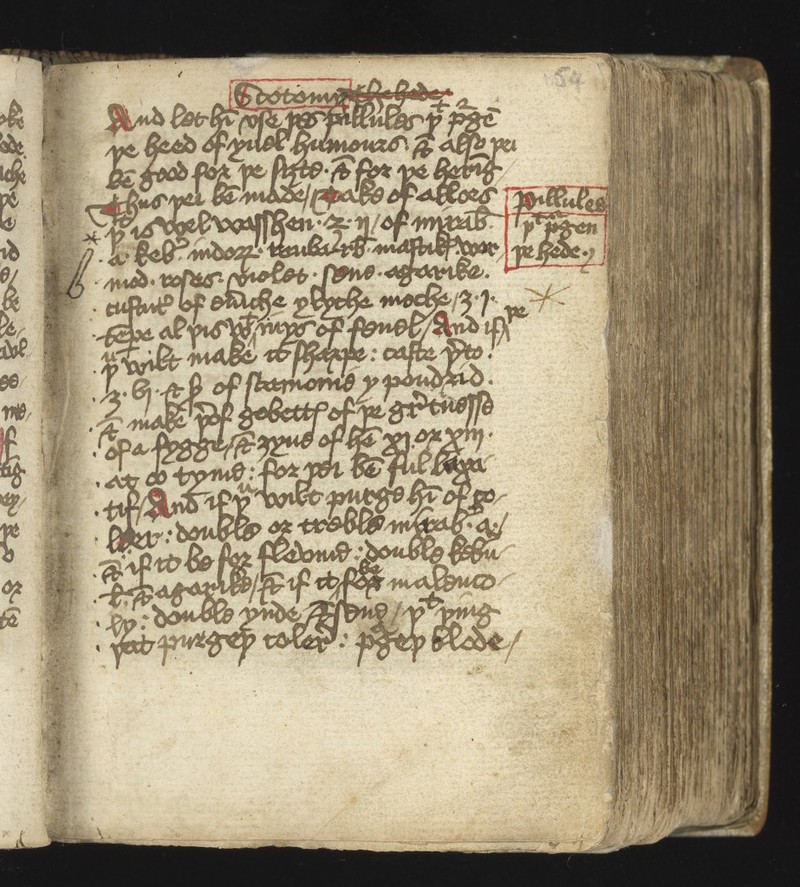 54
Scotomy the hede
And let hī vse þes pillules þᵗ pᵃgē
þe heed of yuel humours. & also þei
bē good for þe siȝte. & for þe herīg
Thus þei bē made / Take of alloes
þᵗ is wel wasshen. ʒ. ij / of mirab.
a. keb' indoꝝ. reubarb. mastik. wor
mod. roses. violet. sene. agarike.
cuscute of eūiche ylyche moche / ʒ. j.
tēpe al þis wᵗ iuys of fenel / And if
þe
þᵘ wilt make it sharpe : caste þ'to.
ʒ. vj. & ß of scamonie ypoudrid.
& make þ'of gobettꝭ of þe gr'tnesse
of a fygge / & ȝyue of hē xj or xiij.
at oo tyme : for þei bē ful laxa
tif / And if þᵘ wilt purge hī of co
lerr : double or treble mirab. a. /
& if it be for flewme : double kebu
l. & agarike / & if it be for malenco
ly : double ynde & sene / þᵗ þing
þat purgeþ coler : pᵃgeþ blode /
Pillules
þᵗ pᵃgen
þe hede.